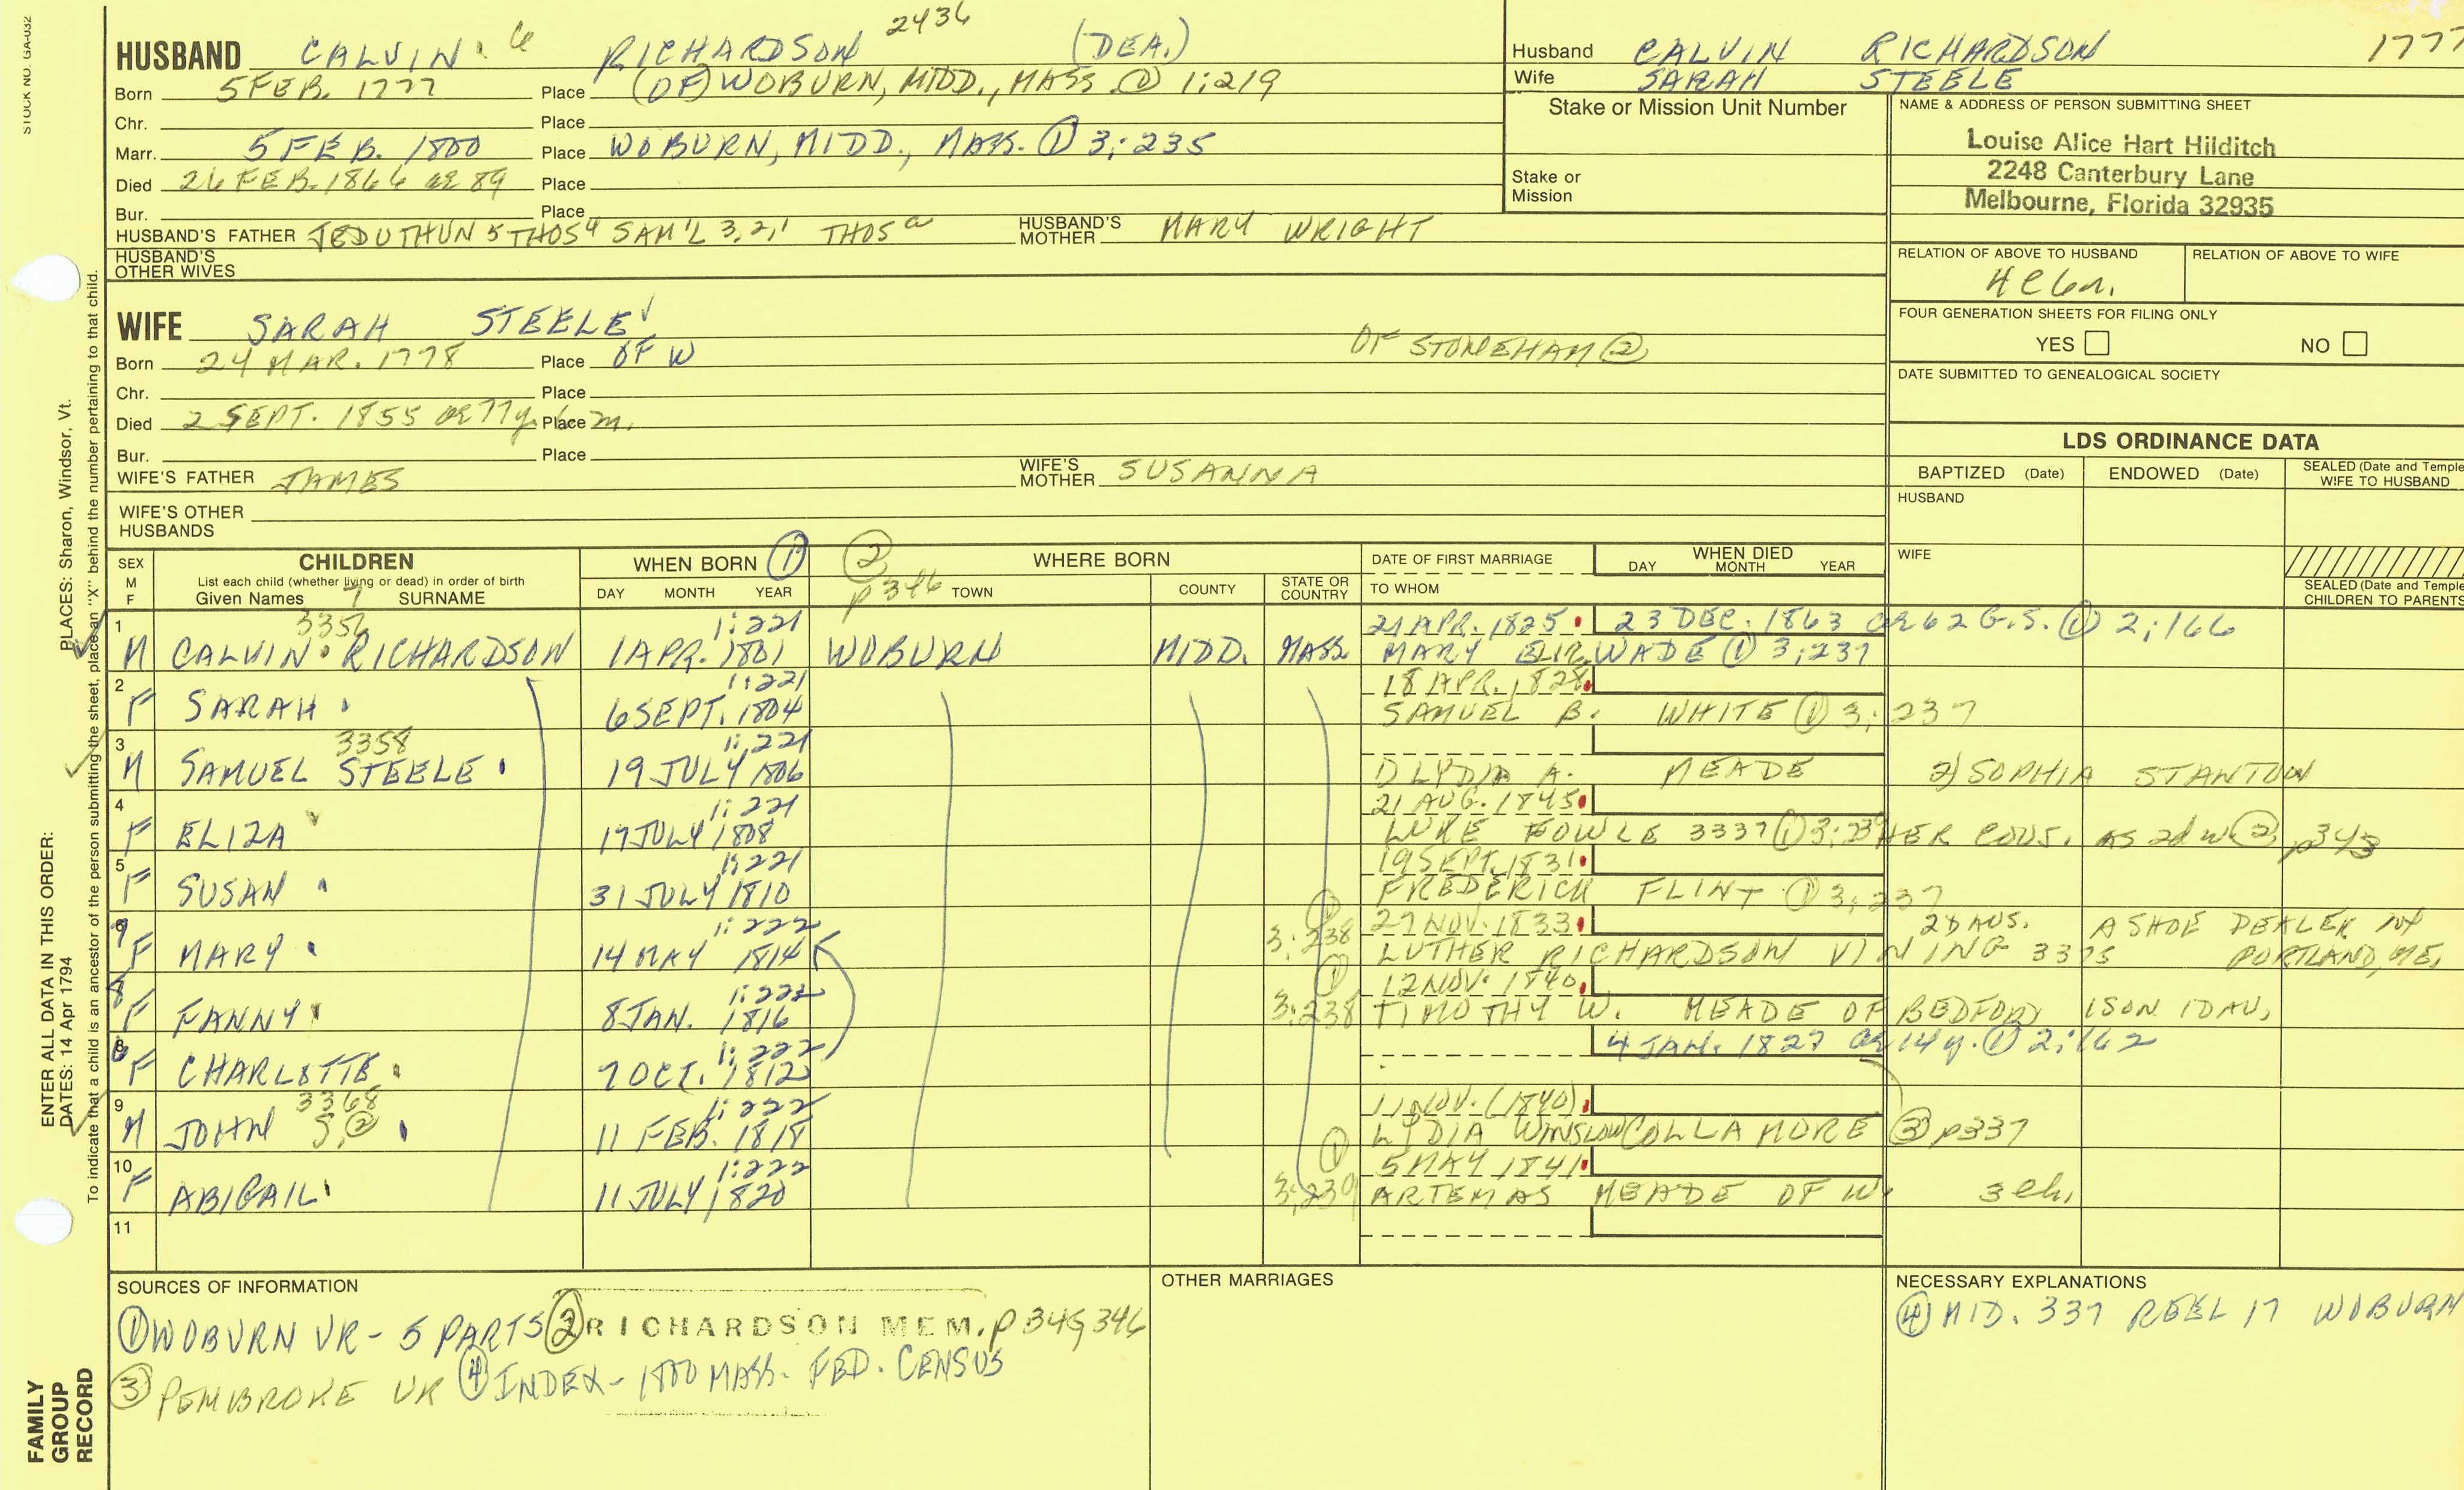 STOCK NO. GA-032
2436
HUSBAND CALVIN 6 RICHARDSON (DEA.)
Born 5 FEB. 1777 Place (OF) WOBURN, MIDD., MASS ① 1:219
Chr. Place
Marr. 5 FEB. 1800 Place WOBURN, MIDD., MASS. ① 3:235
Died 26 FEB. 1866 ae 89 Place
Bur. Place
HUSBAND'S FATHER JEDUTHUN 5 THOS 4 SAM'L 3,2,1 THOS a HUSBAND'S MOTHER MARY WRIGHT
HUSBAND'S OTHER WIVES
Husband CALVIN RICHARDSON 1777
Wife SARAH STEELE
Stake or Mission Unit Number
Stake or Mission
NAME & ADDRESS OF PERSON SUBMITTING SHEET
Louise Alice Hart Hilditch
2248 Canterbury Lane
Melbourne, Florida 32935
RELATION OF ABOVE TO HUSBAND RELATION OF ABOVE TO WIFE
FOUR GENERATION SHEETS FOR FILING ONLY
YES NO
DATE SUBMITTED TO GENEALOGICAL SOCIETY
WIFE SARAH STEELE
Born 24 MAR. 1778 Place OF W OF STONEHAM ②
Chr. Place
Died 2 SEPT. 1855 ae 77y. Place m.
Bur. Place
WIFE'S FATHER JAMES WIFE'S MOTHER SUSANNA
WIFE'S OTHER HUSBANDS
LDS ORDINANCE DATA
BAPTIZED (Date) ENDOWED (Date) SEALED (Date and Temple WIFE TO HUSBAND
HUSBAND
WIFE
SEALED (Date and Temple CHILDREN TO PARENTS
SEX M F
CHILDREN
List each child (whether living or dead) in order of birth
Given Names 7 SURNAME
WHEN BORN ①
DAY MONTH YEAR
② p 346
WHERE BORN
TOWN COUNTY STATE OR COUNTRY
DATE OF FIRST MARRIAGE
TO WHOM
WHEN DIED
DAY MONTH YEAR
3356 1:221 21 APR. 1825 23 DEC. 1863 ae 62 G.S. ① 2:166
1 M CALVIN RICHARDSON 1 APR. 1801 WOBURN MIDD. MASS MARY ELIZ. WADE ① 3:237
1:221 18 APR. 1828
2 F SARAH 6 SEPT. 1804 SAMUEL B. WHITE ① 3:237
3358 1:221
3 M SAMUEL STEELE 19 JULY 1806 1) LYDIA A. MEADE 2) SOPHIA STANTON
1:221 21 AUG. 1845
4 F ELIZA 17 JULY 1808 LUKE FOWLE 3337 ① HER COUS. AS 2d w ② p343
1:221 19 SEPT. 1831
5 F SUSAN 31 JULY 1810 FREDERICK FLINT ① 3:237
1:222 ① 3:238 27 NOV. 1833 A SHOE DEALER
7 F MARY 14 MAY 1814 LUTHER RICHARDSON VINING 3375 PORTLAND, ME.
1:222 ① 3:238 12 NOV. 1840
8 F FANNY 8 JAN. 1816 TIMOTHY W. MEADE OF BEDFORD 1 SON 1 DAU.
1:222 4 JAN. 1827 ae 14 y. ① 2:162
6 F CHARLOTTE 7 OCT. 1812
3368 1:222 11 NOV. (1840)
9 M JOHN S. ② 11 FEB. 1818 LYDIA WINSLOW COLLAMORE ③ p337
1:222 ① 3:239 5 MAY 1841
10 F ABIGAIL 11 JULY 1820 ARTEMAS MEADE OF W. 3 ch.
11
SOURCES OF INFORMATION
① WOBURN VR - 5 PARTS ② RICHARDSON MEM. p 345, 346
③ PEMBROKE VR ④ INDEX - 1800 MASS. FED. CENSUS
OTHER MARRIAGES
NECESSARY EXPLANATIONS
④ MID. 337 REEL 17 WOBURN
ENTER ALL DATA IN THIS ORDER:
DATES: 14 Apr 1794 PLACES: Sharon, Windsor, Vt.
To indicate that a child is an ancestor of the person submitting the sheet, place an "X" behind the number pertaining to that child.
FAMILY
GROUP
RECORD